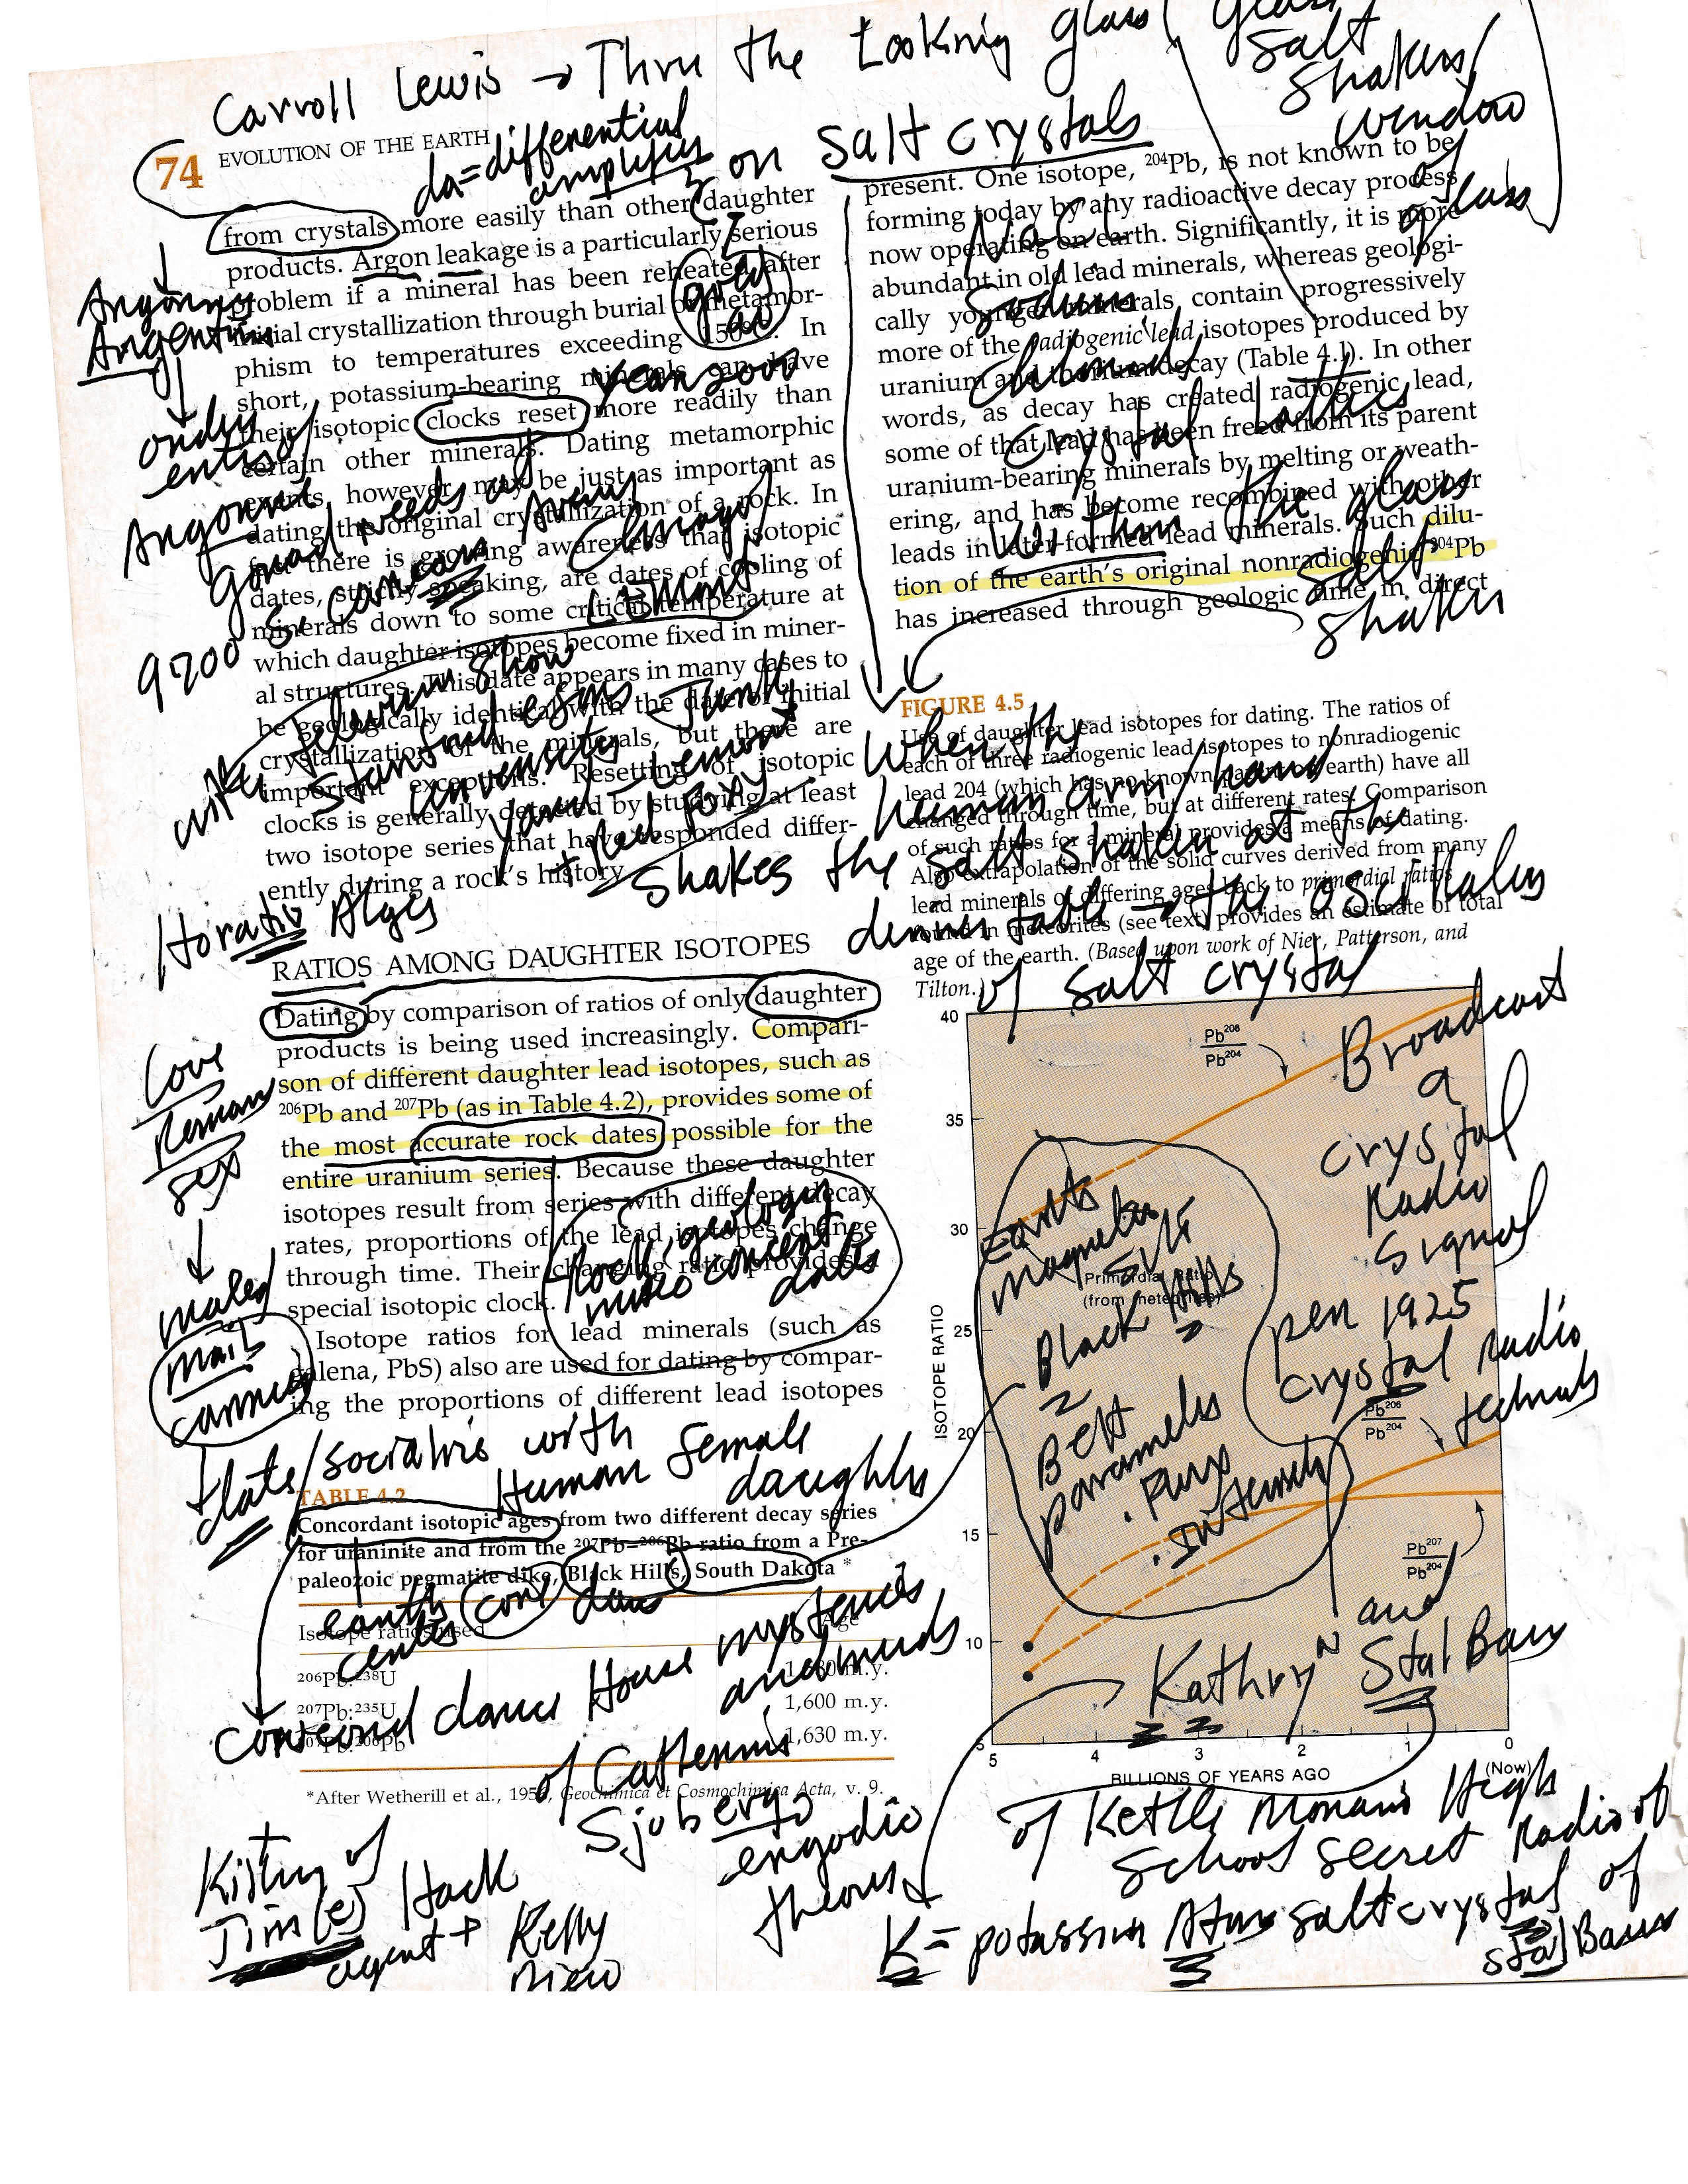 Carroll Lewis → Thru the Looking glass
salt
shakers/
window
of
glass
74 EVOLUTION OF THE EARTH
da=differential
amplifier
on salt crystals
from crystals more easily than other daughter
products. Argon leakage is a particularly serious
problem if a mineral has been reheated after
initial crystallization through burial or metamor-
phism to temperatures exceeding 150°C. In
short, potassium-bearing minerals can have
their isotopic clocks reset more readily than
certain other minerals. Dating metamorphic
events, however, may be just as important as
dating the original crystallization of a rock. In
fact there is growing awareness that isotopic
dates, strictly speaking, are dates of cooling of
minerals down to some critical temperature at
which daughter isotopes become fixed in miner-
al structures. This date appears in many cases to
be geologically identical with the date of initial
crystallization of the minerals, but there are
important exceptions. Resetting of isotopic
clocks is generally detected by studying at least
two isotope series that have responded differ-
ently during a rock's history.
gold
au
year 2000
Argentina
order
entis of
Argonne
gonad needs of
9700 S. Cass Avenue
Chicago
Lemont
Stanford
university
Junk
yard - Lemont
+ Red Foxx
Horatio Alger
RATIOS AMONG DAUGHTER ISOTOPES
Dating by comparison of ratios of only daughter
products is being used increasingly. Compari-
son of different daughter lead isotopes, such as
206Pb and 207Pb (as in Table 4.2), provides some of
the most accurate rock dates possible for the
entire uranium series. Because these daughter
isotopes result from series with different decay
rates, proportions of the lead isotopes change
through time. Their changing ratio provides a
special isotopic clock.
Isotope ratios for lead minerals (such as
galena, PbS) also are used for dating by compar-
ing the proportions of different lead isotopes
Love
sex
males
mail
carriers
Rock, geology
music concert
dates
date/socratis with
Human female
daughters
TABLE 4.2
Concordant isotopic ages from two different decay series
for uraninite and from the 207Pb–206Pb ratio from a Pre-
paleozoic pegmatite dike, Black Hills, South Dakota *
earth
center
cord
dans
Isotope ratios used Age
206Pb:238U 1,580 m.y.
207Pb:235U 1,600 m.y.
207Pb:206Pb 1,630 m.y.
concord dance House mysteries
and murders
of Catherine
Sjobergo
ergodic
theories
*After Wetherill et al., 1956, Geochimica et Cosmochimica Acta, v. 9.
Kistry of
Jim(e) Hack
agent + Kelly
present. One isotope, 204Pb, is not known to be
forming today by any radioactive decay process
now operating on earth. Significantly, it is more
abundant in old lead minerals, whereas geologi-
cally younger minerals contain progressively
more of the radiogenic lead isotopes produced by
uranium and thorium decay (Table 4.1). In other
words, as decay has created radiogenic lead,
some of that lead has been freed from its parent
uranium-bearing minerals by melting or weath-
ering, and has become recombined with other
leads in later-formed lead minerals. Such dilu-
tion of the earth's original nonradiogenic 204Pb
has increased through geologic time in direct
NaCl
Sodium
chloride
crystal lattice
within the glass
salt
shaker
FIGURE 4.5
Use of daughter lead isotopes for dating. The ratios of
each of three radiogenic lead isotopes to nonradiogenic
lead 204 (which has no known parent on earth) have all
changed through time, but at different rates. Comparison
of such ratios for a mineral provides a means of dating.
Also extrapolation of the solid curves derived from many
lead minerals of differing ages back to primordial ratios
found in meteorites (see text) provides an estimate of total
age of the earth. (Based upon work of Nier, Patterson, and
Tilton.)
when the
human arm/hand
shakes the salt shaker at the
dinner table → the oscillates
of salt crystal
Broadcast
a
crystal
Radio
signal
per 1925
crystal radio
40
35
30
25
20
15
10
5
ISOTOPE RATIO
Pb208
Pb204
Primordial Ratio
(from meteorites)
Pb206
Pb204
Pb207
Pb204
5 4 3 2 1 0
(Now)
BILLIONS OF YEARS AGO
Earths
magnetic
Black Hills
Belt
parameters
. Flux
. Intensity
Kathryn and
Stal Baux
of Kettle Morain High
School secret Radio of
K= potassium Atom salt crystal of
stal Baux